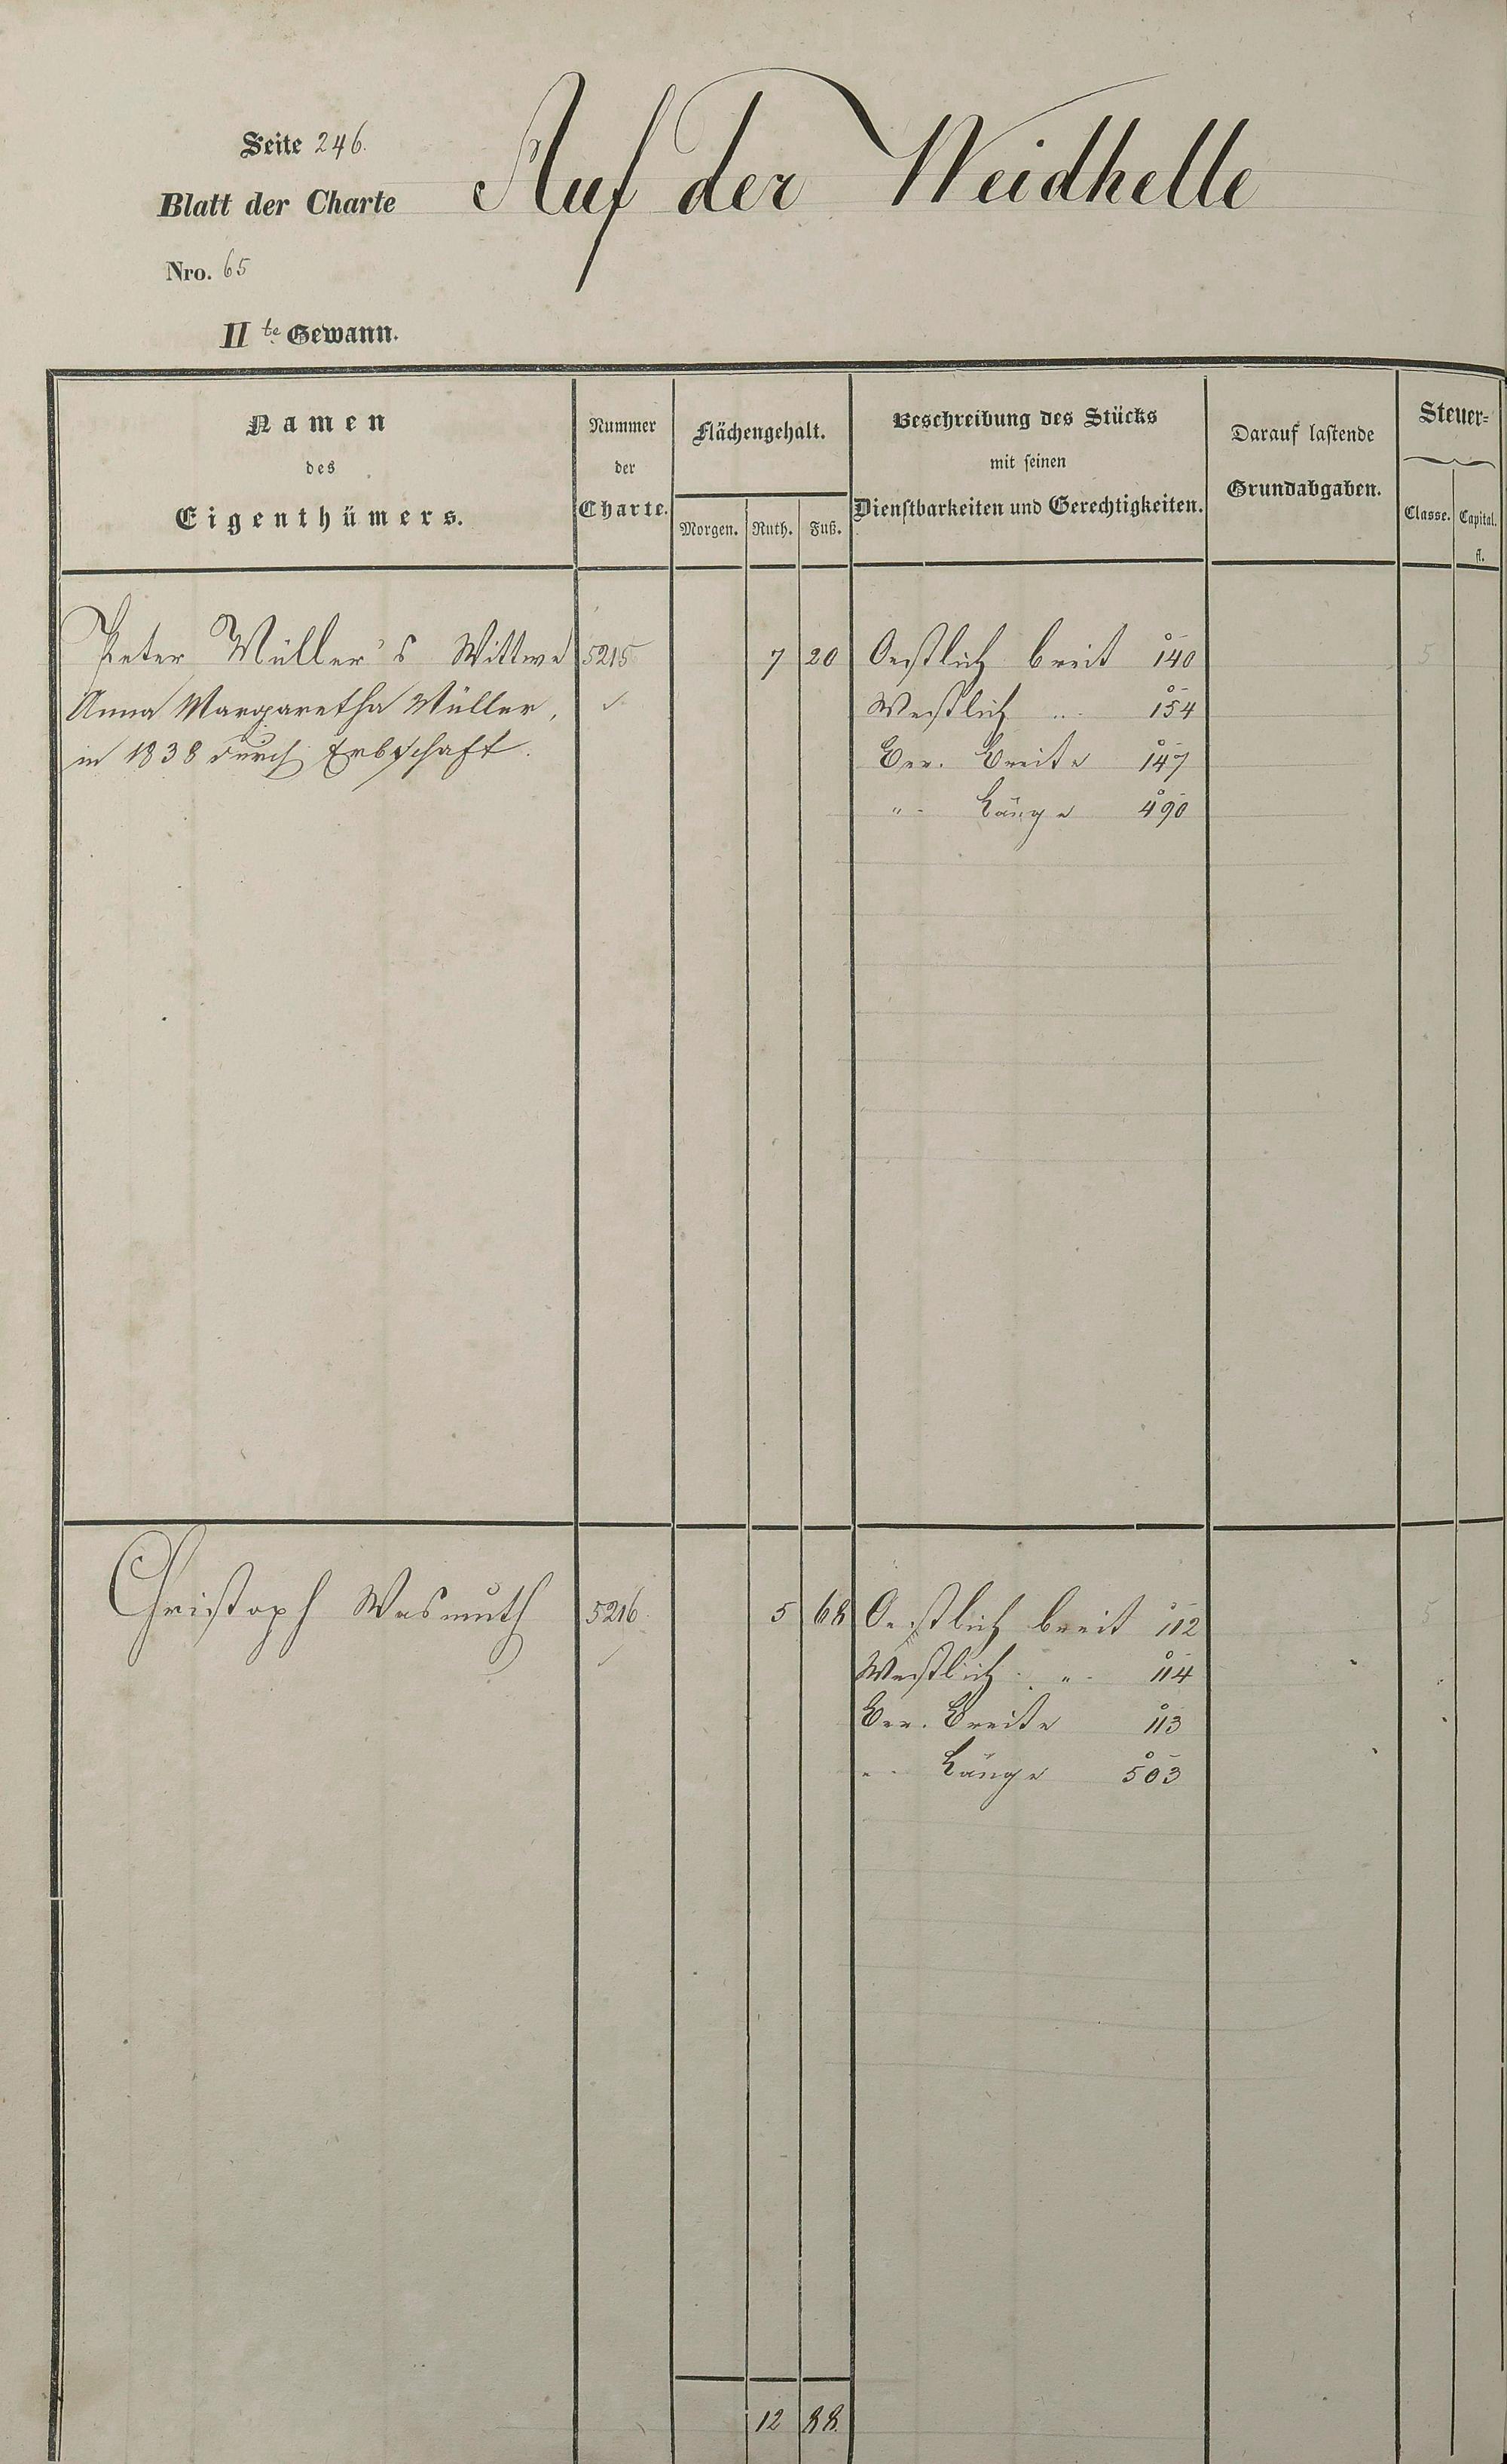 Seite 246.
Auf der Weidhelle
Blatt der Charte
Nro. 65
II te Gewann.
Namen
des
Eigenthümers.
Nummer
der
Charte.
Flächengehalt.
Morgen. Ruth. Fuß.
Beschreibung des Stücks
mit seinen
Dienstbarkeiten und Gerechtigkeiten.
Darauf lastende
Grundabgaben.
Steuer=
Classe. Capital.
fl.
Peter Müller's Wittwe 5215 7 20 Oestlich breit 140 5
Anna Margaretha Müller, ✓ Westlich " 154
in 1838 durch Erbschaft. Ber. Breite 147
" Länge 490
Christoph Wasmuth 5216 5 68 Oestlich breit 112 5
✓ Westlich " 114
Ber. Breite 113
" Länge 503
12 88